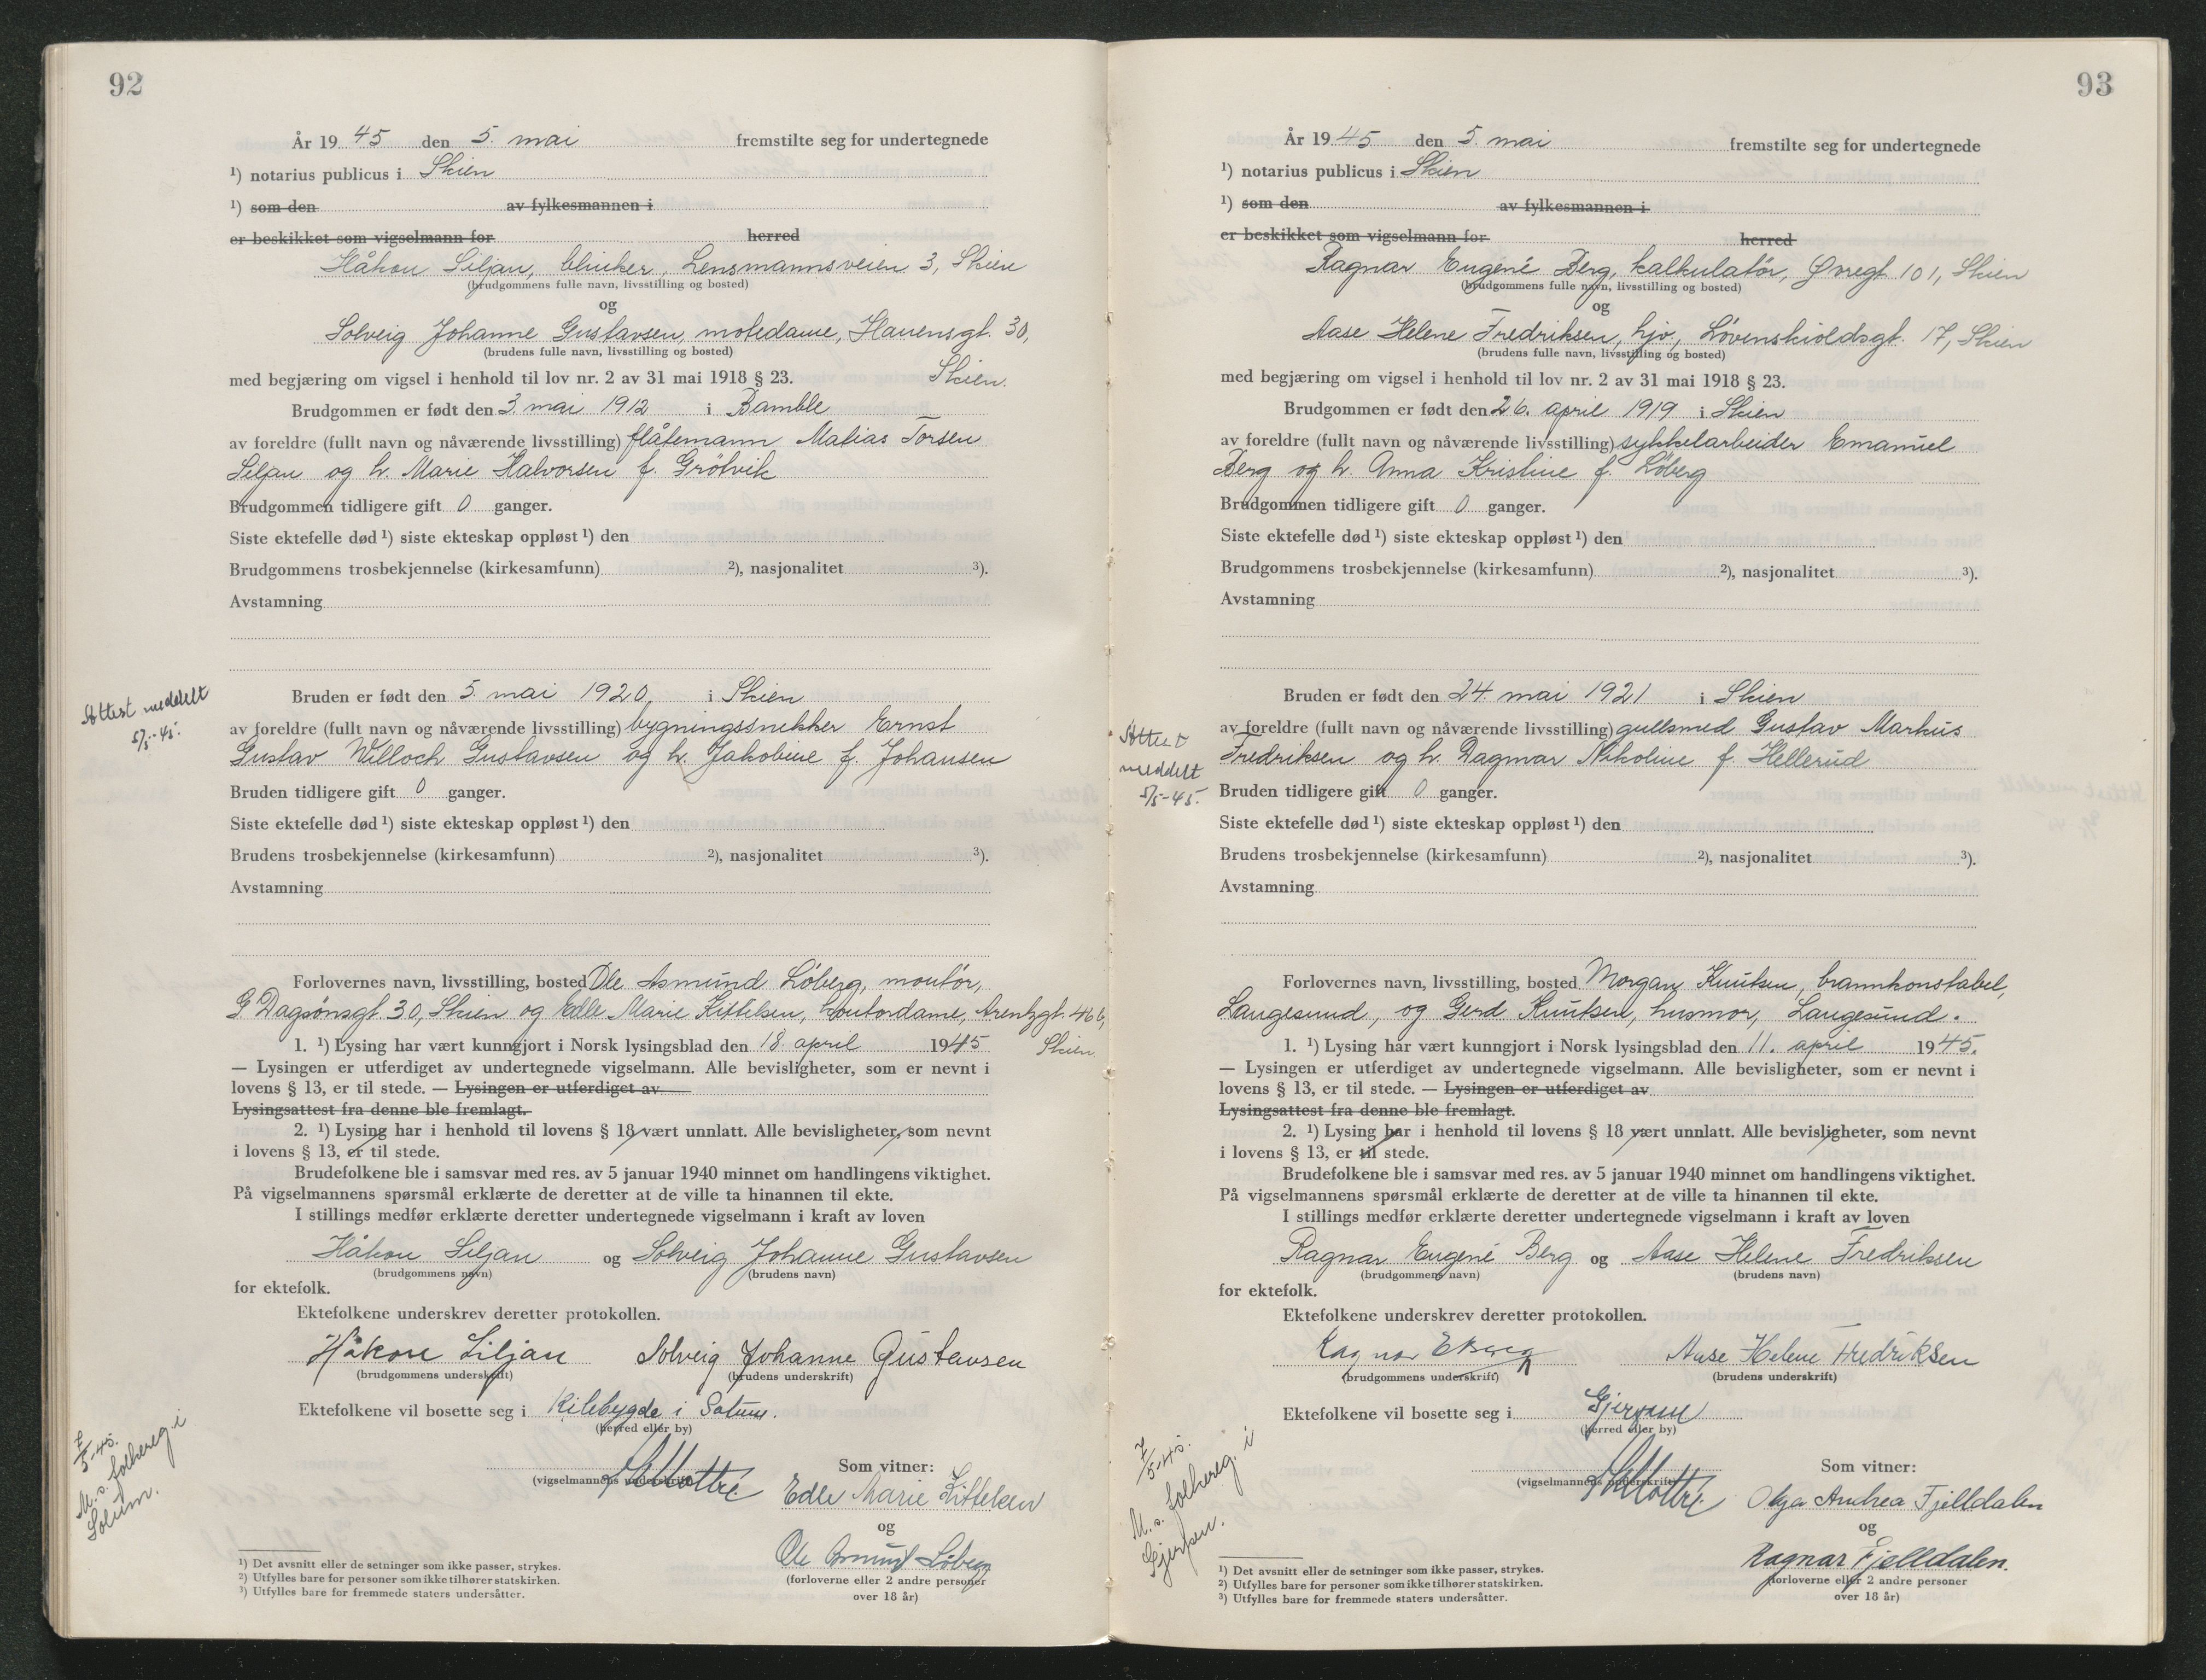 92
År 1945 den 5. mai fremstilte seg for undertegnede
¹) notarius publicus i Skien
¹) som den av fylkesmannen i
er beskikket som vigselmann for herred
Håkon Siljan, blinker, Lensmannsveien 3, Skien
(brudgommens fulle navn, livsstilling og bosted)
og
Solveig Johanne Gustavsen, motedame, Hauensgt. 30,
(brudens fulle navn, livsstilling og bosted)
Skien.
med begjæring om vigsel i henhold til lov nr. 2 av 31 mai 1918 § 23.
Brudgommen er født den 3. mai 1912 i Bamble
av foreldre (fullt navn og nåværende livsstilling) flåtemann Matias Torsen
Siljan og h. Marie Halvorsen f. Grötvik
Brudgommen tidligere gift 0 ganger.
Siste ektefelle død ¹) siste ekteskap oppløst ¹) den
Brudgommens trosbekjennelse (kirkesamfunn) ²), nasjonalitet ³).
Avstamning
Attest meddelt
5/5-45.
Bruden er født den 5. mai 1920, i Skien
av foreldre (fullt navn og nåværende livsstilling) bygningssnekker Ernst
Gustav Willoch Gustavsen og h. Jakobine f. Johansen
Bruden tidligere gift 0 ganger.
Siste ektefelle død ¹) siste ekteskap oppløst ¹) den
Brudens trosbekjennelse (kirkesamfunn) ²), nasjonalitet ³).
Avstamning
Forlovernes navn, livsstilling, bosted Ole Asmund Löberg, montör,
G. Dagsönsgt. 30, Skien og Edle Marie Kittelsen, kontordame, Arentzgt. 46 b,
Skien
1. ¹) Lysing har vært kunngjort i Norsk lysingsblad den 18. april 1945
— Lysingen er utferdiget av undertegnede vigselmann. Alle bevisligheter, som er nevnt i
lovens § 13, er til stede. — Lysingen er utferdiget av
Lysingsattest fra denne ble fremlagt.
2. ¹) Lysing har i henhold til lovens § 18 vært unnlatt. Alle bevisligheter, som nevnt
i lovens § 13, er til stede.
Brudefolkene ble i samsvar med res. av 5 januar 1940 minnet om handlingens viktighet.
På vigselmannens spørsmål erklærte de deretter at de ville ta hinannen til ekte.
I stillings medfør erklærte deretter undertegnede vigselmann i kraft av loven
Håkon Siljan og Solveig Johanne Gustavsen
(brudgommens navn) (brudens navn)
for ektefolk.
Ektefolkene underskrev deretter protokollen.
Håkon Siljan Solveig Johanne Gustavsen
(brudgommens underskrift) (brudens underskrift)
Ektefolkene vil bosette seg i Kilebygde i Solum.
(herred eller by)
7/5-45.
M. s. folkereg. i
Solum.
(vigselmannens underskrift)
Som vitner:
Edle Marie Kittelsen
og
Ole Asmund Löberg
(forloverne eller 2 andre personer
over 18 år)
¹) Det avsnitt eller de setninger som ikke passer, strykes.
²) Utfylles bare for personer som ikke tilhører statskirken.
³) Utfylles bare for fremmede staters undersåtter.
93
År 1945 den 5. mai fremstilte seg for undertegnede
¹) notarius publicus i Skien
¹) som den av fylkesmannen i
er beskikket som vigselmann for herred
Ragnar Eugené Berg, kalkulatör, Øvregt. 101, Skien
(brudgommens fulle navn, livsstilling og bosted)
og
Aase Helene Fredriksen, hjv., Lövenskioldsgt. 17, Skien
(brudens fulle navn, livsstilling og bosted)
med begjæring om vigsel i henhold til lov nr. 2 av 31 mai 1918 § 23.
Brudgommen er født den 26. april 1919 i Skien
av foreldre (fullt navn og nåværende livsstilling) sykkelarbeider Emanuel
Berg og h. Anna Kristine f. Löberg
Brudgommen tidligere gift 0 ganger.
Siste ektefelle død ¹) siste ekteskap oppløst ¹) den
Brudgommens trosbekjennelse (kirkesamfunn) ²), nasjonalitet ³).
Avstamning
Attest
meddelt
5/5-45.
Bruden er født den 24. mai 1921 i Skien
av foreldre (fullt navn og nåværende livsstilling) gullsmed Gustav Markus
Fredriksen og h. Dagmar Nikoline f. Hellerud
Bruden tidligere gift 0 ganger.
Siste ektefelle død ¹) siste ekteskap oppløst ¹) den
Brudens trosbekjennelse (kirkesamfunn) ²), nasjonalitet ³).
Avstamning
Forlovernes navn, livsstilling, bosted Morgan Knutsen, brannkonstabel,
Langesund, og Gerd Knutsen, husmor, Langesund.
1. ¹) Lysing har vært kunngjort i Norsk lysingsblad den 11. april 1945.
— Lysingen er utferdiget av undertegnede vigselmann. Alle bevisligheter, som er nevnt i
lovens § 13, er til stede. — Lysingen er utferdiget av
Lysingsattest fra denne ble fremlagt.
2. ¹) Lysing har i henhold til lovens § 18 vært unnlatt. Alle bevisligheter, som nevnt
i lovens § 13, er til stede.
Brudefolkene ble i samsvar med res. av 5 januar 1940 minnet om handlingens viktighet.
På vigselmannens spørsmål erklærte de deretter at de ville ta hinannen til ekte.
I stillings medfør erklærte deretter undertegnede vigselmann i kraft av loven
Ragnar Eugené Berg og Aase Helene Fredriksen
(brudgommens navn) (brudens navn)
for ektefolk.
Ektefolkene underskrev deretter protokollen.
Ragnar E Berg Aase Helene Fredriksen
(brudgommens underskrift) (brudens underskrift)
Ektefolkene vil bosette seg i Gjerpen
(herred eller by)
7/5-45.
M. s. folkereg. i
Gjerpen.
(vigselmannens underskrift)
Som vitner:
Olga Andrea Fjelldalen
og
Ragnar Fjelldalen.
(forloverne eller 2 andre personer
over 18 år)
¹) Det avsnitt eller de setninger som ikke passer, strykes.
²) Utfylles bare for personer som ikke tilhører statskirken.
³) Utfylles bare for fremmede staters undersåtter.